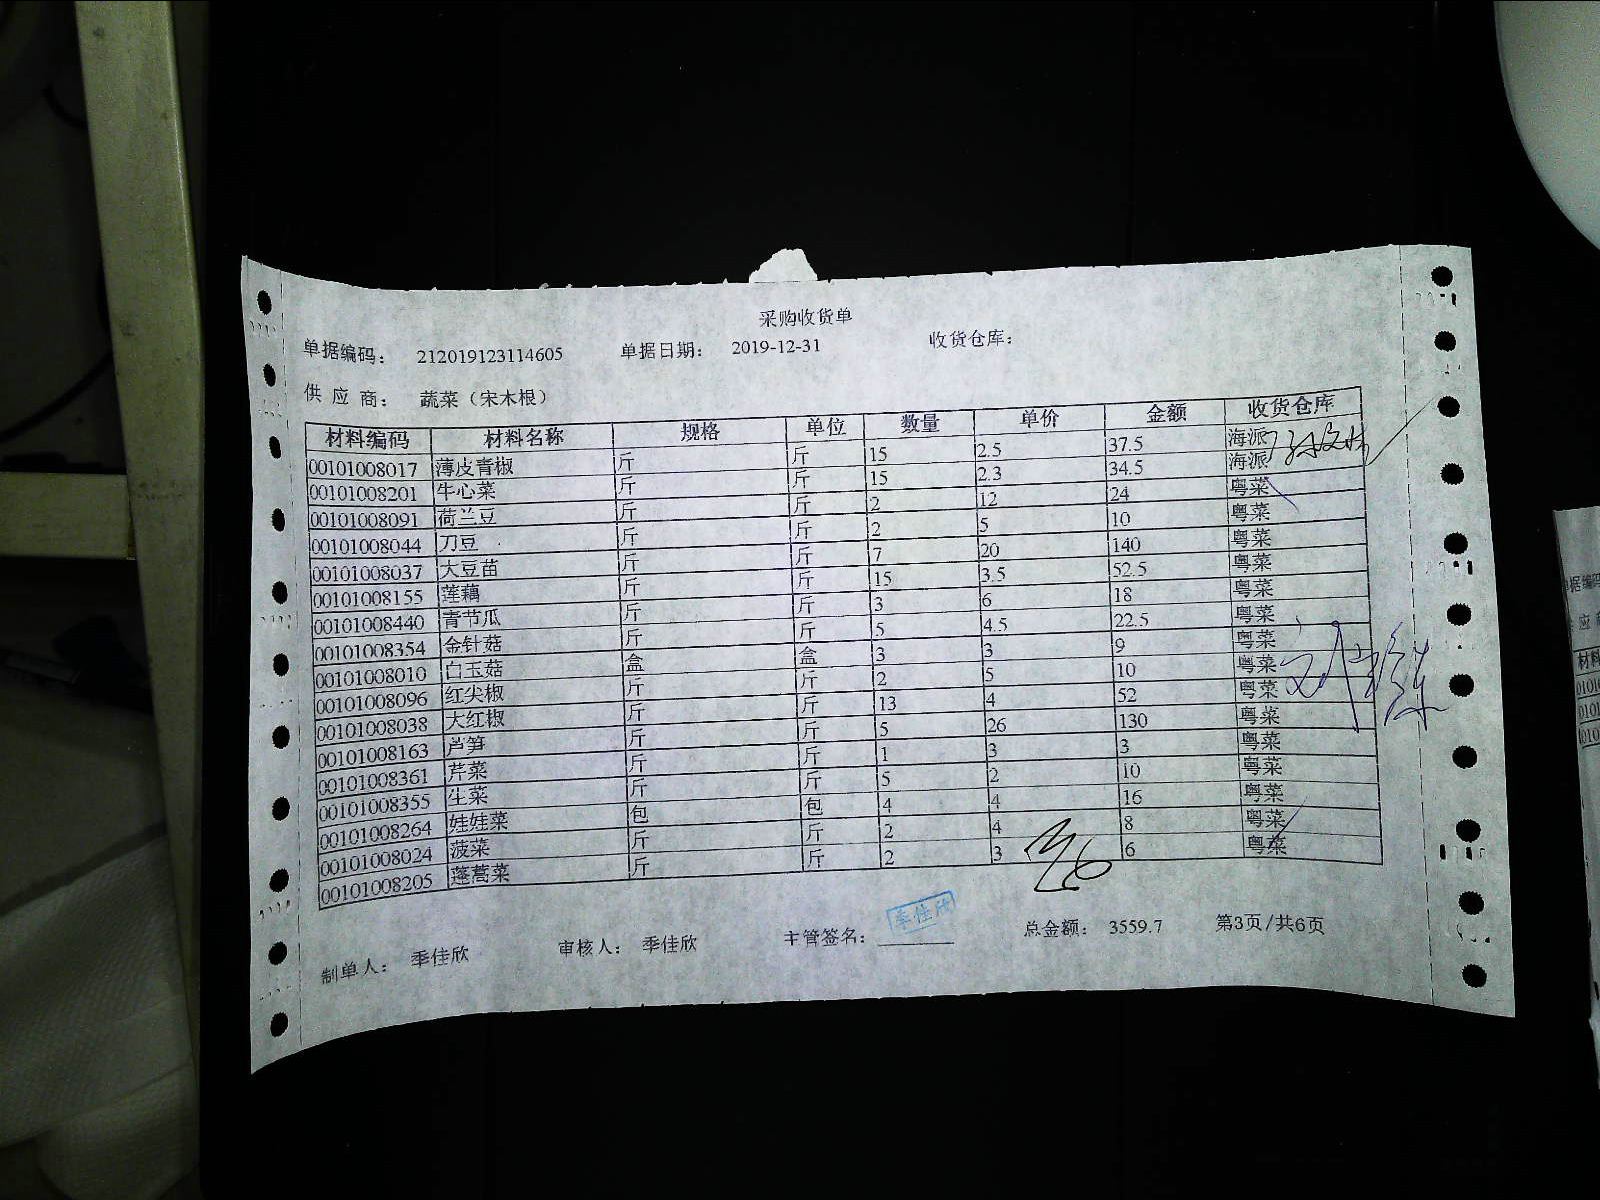 采购收货单
单据编码： 212019123114605 单据日期： 2019-12-31 收货仓库：
供 应 商： 蔬菜（宋木根）
材料编码 材料名称 规格 单位 数量 单价 金额 收货仓库
00101008017 薄皮青椒 斤 斤 15 2.5 37.5 海派
00101008201 牛心菜 斤 斤 15 2.3 34.5 海派
00101008091 荷兰豆 斤 斤 2 12 24 粤菜
00101008044 刀豆 斤 斤 2 5 10 粤菜
00101008037 大豆苗 斤 斤 7 20 140 粤菜
00101008155 莲藕 斤 斤 15 3.5 52.5 粤菜
00101008440 青节瓜 斤 斤 3 6 18 粤菜
00101008354 金针菇 斤 斤 5 4.5 22.5 粤菜
00101008010 白玉菇 盒 盒 3 3 9 粤菜
00101008096 红尖椒 斤 斤 2 5 10 粤菜
00101008038 大红椒 斤 斤 13 4 52 粤菜
00101008163 芦笋 斤 斤 5 26 130 粤菜
00101008361 芹菜 斤 斤 1 3 3 粤菜
00101008355 生菜 斤 斤 5 2 10 粤菜
00101008264 娃娃菜 包 包 4 4 16 粤菜
00101008024 菠菜 斤 斤 2 4 8 粤菜
00101008205 蓬蒿菜 斤 斤 2 3 6 粤菜
制单人： 季佳欣 审核人： 季佳欣 主管签名： 季佳欣 总金额： 3559.7 第3页/共6页